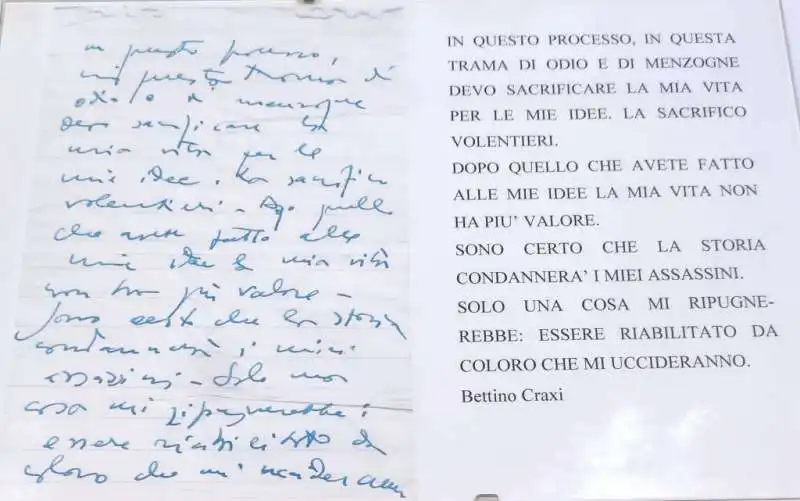 in questo processo,
in questa trama di
odio e di menzogne
devo sacrificare la
mia vita per le
mie idee. La sacrifico
volentieri - Dopo quello
che avete fatto alle
mie idee la mia vita
non ha più valore -
Sono certo che la storia
condannerà i miei
assassini - Solo una
cosa mi ripugnerebbe:
essere riabilitato da
coloro che mi uccideranno
IN QUESTO PROCESSO, IN QUESTA
TRAMA DI ODIO E DI MENZOGNE
DEVO SACRIFICARE LA MIA VITA
PER LE MIE IDEE. LA SACRIFICO
VOLENTIERI.
DOPO QUELLO CHE AVETE FATTO
ALLE MIE IDEE LA MIA VITA NON
HA PIU' VALORE.
SONO CERTO CHE LA STORIA
CONDANNERA' I MIEI ASSASSINI.
SOLO UNA COSA MI RIPUGNE-
REBBE: ESSERE RIABILITATO DA
COLORO CHE MI UCCIDERANNO.
Bettino Craxi